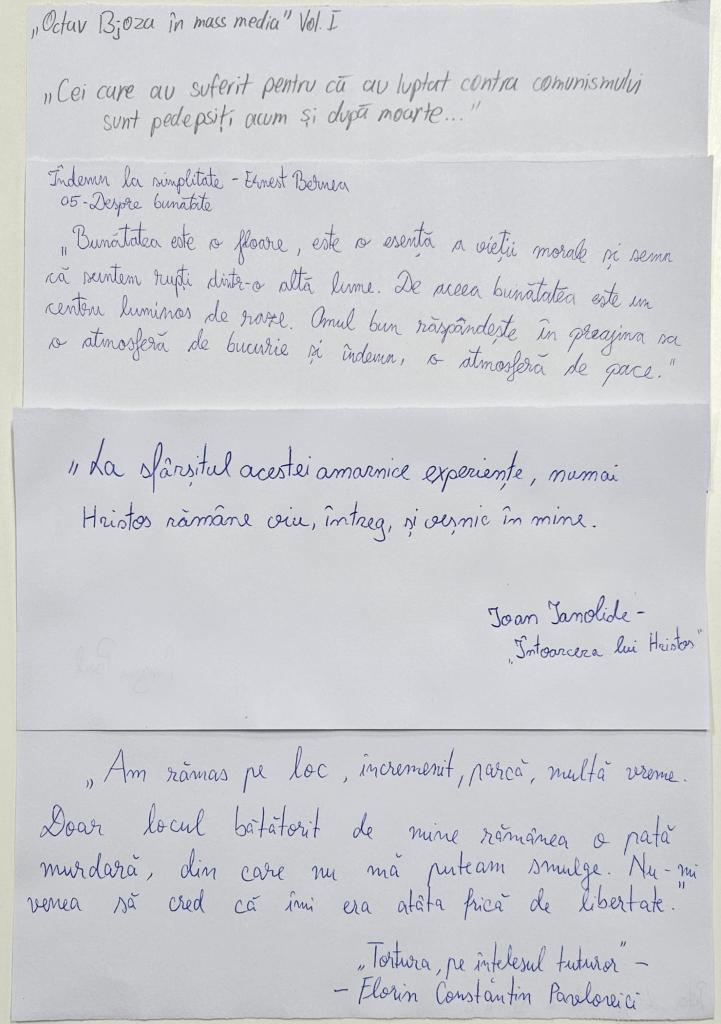 „Octav Bjoza în mass media" Vol. I
„Cei care au suferit pentru că au luptat contra comunismului
sunt pedepsiți acum și după moarte..."
Îndemn la simplitate - Ernest Bernea
05 - Despre bunătate
„Bunătatea este o floare, este o esență a vieții morale și semn
că suntem rupți dintr-o altă lume. De aceea bunătatea este un
centru luminos de raze. Omul bun răspândește în preajma sa
o atmosferă de bucurie și îndemn, o atmosferă de pace."
„La sfârșitul acestei amarnice experiențe, numai
Hristos rămâne viu, întreg, și veșnic în mine.
Ioan Ianolide -
„Întoarcerea lui Hristos"
„Am rămas pe loc, încremenit, parcă, multă vreme.
Doar locul bătătorit de mine rămânea o pată
murdară, din care nu mă puteam smulge. Nu-mi
venea să cred că îmi era atâta frică de libertate."
„Tortura, pe înțelesul tuturor" -
- Florin Constantin Pavlovici